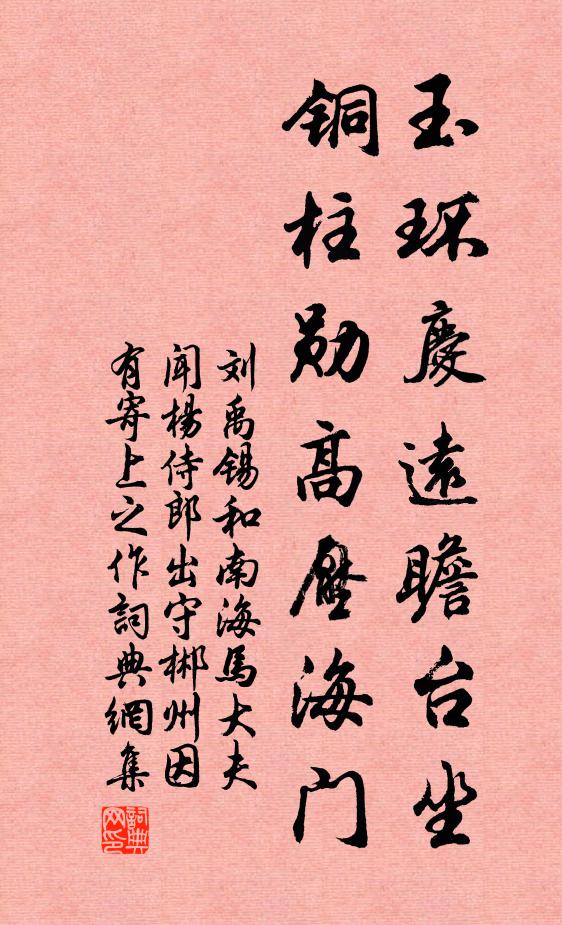 玉环慶遠瞻台坐
銅柱勋高壓海门
刘禹锡和南海馬大夫
闻楊侍郎出守郴州因
有寄上之作詞典網集
詞典网印